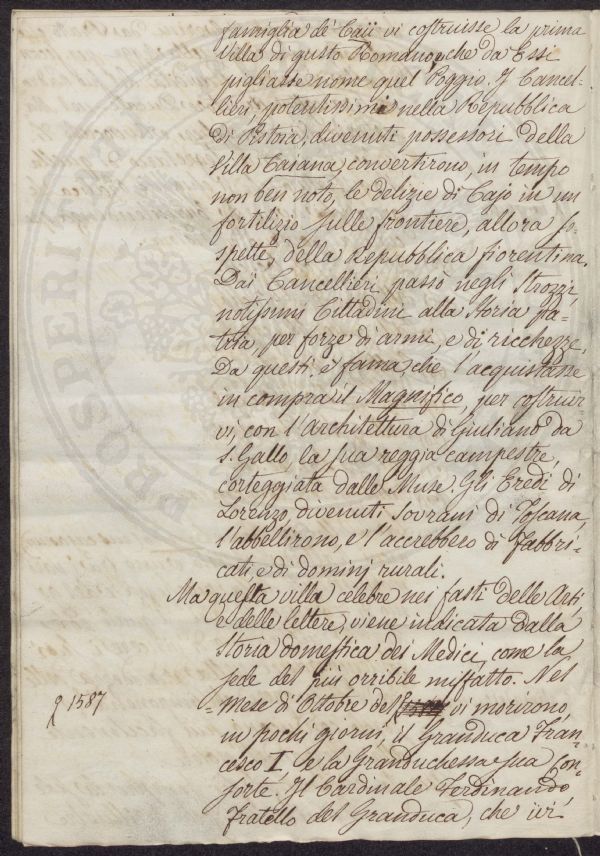 famiglia de' Caii vi costruisse la prima
Villa di gusto Romano, che da Essi
pigliasse nome quel Poggio. I Cancel-
lieri, potentissimi nella Repubblica
di Pistoia, divenuti possessori della
Villa Caiana, convertirono, in tempo
non ben noto, le delizie di Cajo in un
fortilizio sulle frontiere, allora so-
spette, della Repubblica fiorentina.
Dai Cancellieri passò negli Strozzi
notissimi Cittadini alla Storia pa-
tria, per forze di armi, e di ricchezze.
Da questi è fama, che l'acquistasse
in compra il Magnifico, per costruir
vi, con l'Architettura di Giuliano da
S. Gallo, la sua reggia campestre,
corteggiata dalle Muse. Gli Eredi di
Lorenzo divenuti Sovrani di Toscana,
l'abbellirono, e l'accrebbero di Fabbri-
cati, e di dominj rurali.
Ma questa villa celebre nei fasti delle Arti
e delle lettere, viene indicata dalla
Storia domestica dei Medici, come la
sede del più orribile misfatto. Nel
mese di Ottobre del vi morirono,
1587
in pochi giorni, il Granduca Fran-
cesco I. e la Granduchessa sua Con-
sorte. Il Cardinale Ferdinando
Fratello del Granduca, che ivi
PROSPERITATI